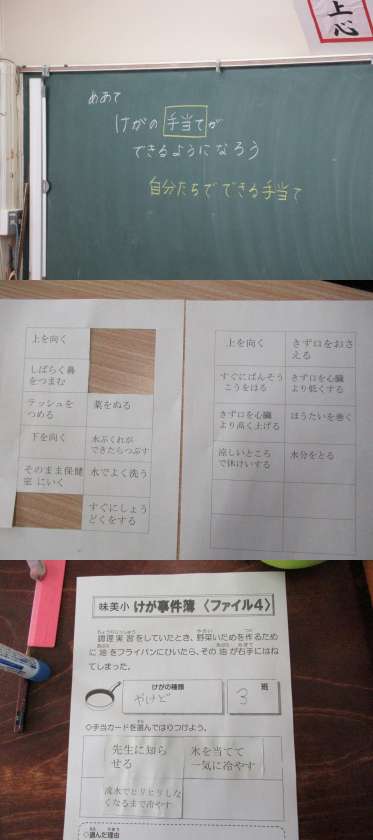 上
心
めあて
けがの手当てが
できるようになろう
自分たちでできる手当て
上を向く
しばらく鼻
をつまむ
テッシュを
つめる
薬をぬる
下を向く
水ぶくれが
できたらつぶす
そのまま保健
室にいく
水でよく洗う
すぐにしょう
どくをする
上を向く
きず口をおさ
える
すぐにばんそう
こうをはる
きず口を心臓
より低くする
きず口を心臓
より高く上げる
ほうたいを巻く
涼しいところ
で休けいする
水分をとる
味美小 けが事件簿 〈ファイル4〉
調理実習をしていたとき、野菜いためを作るため
に油をフライパンにひいたら、その油が右手にはね
てしまった。
けがの種類
やけど
3 班
◇手当カードを選んではりつけよう。
先生に知ら
せる
氷を当てて
一気に冷やす
流水でヒリヒリしな
くなるまで冷やす
◇選んだ理由